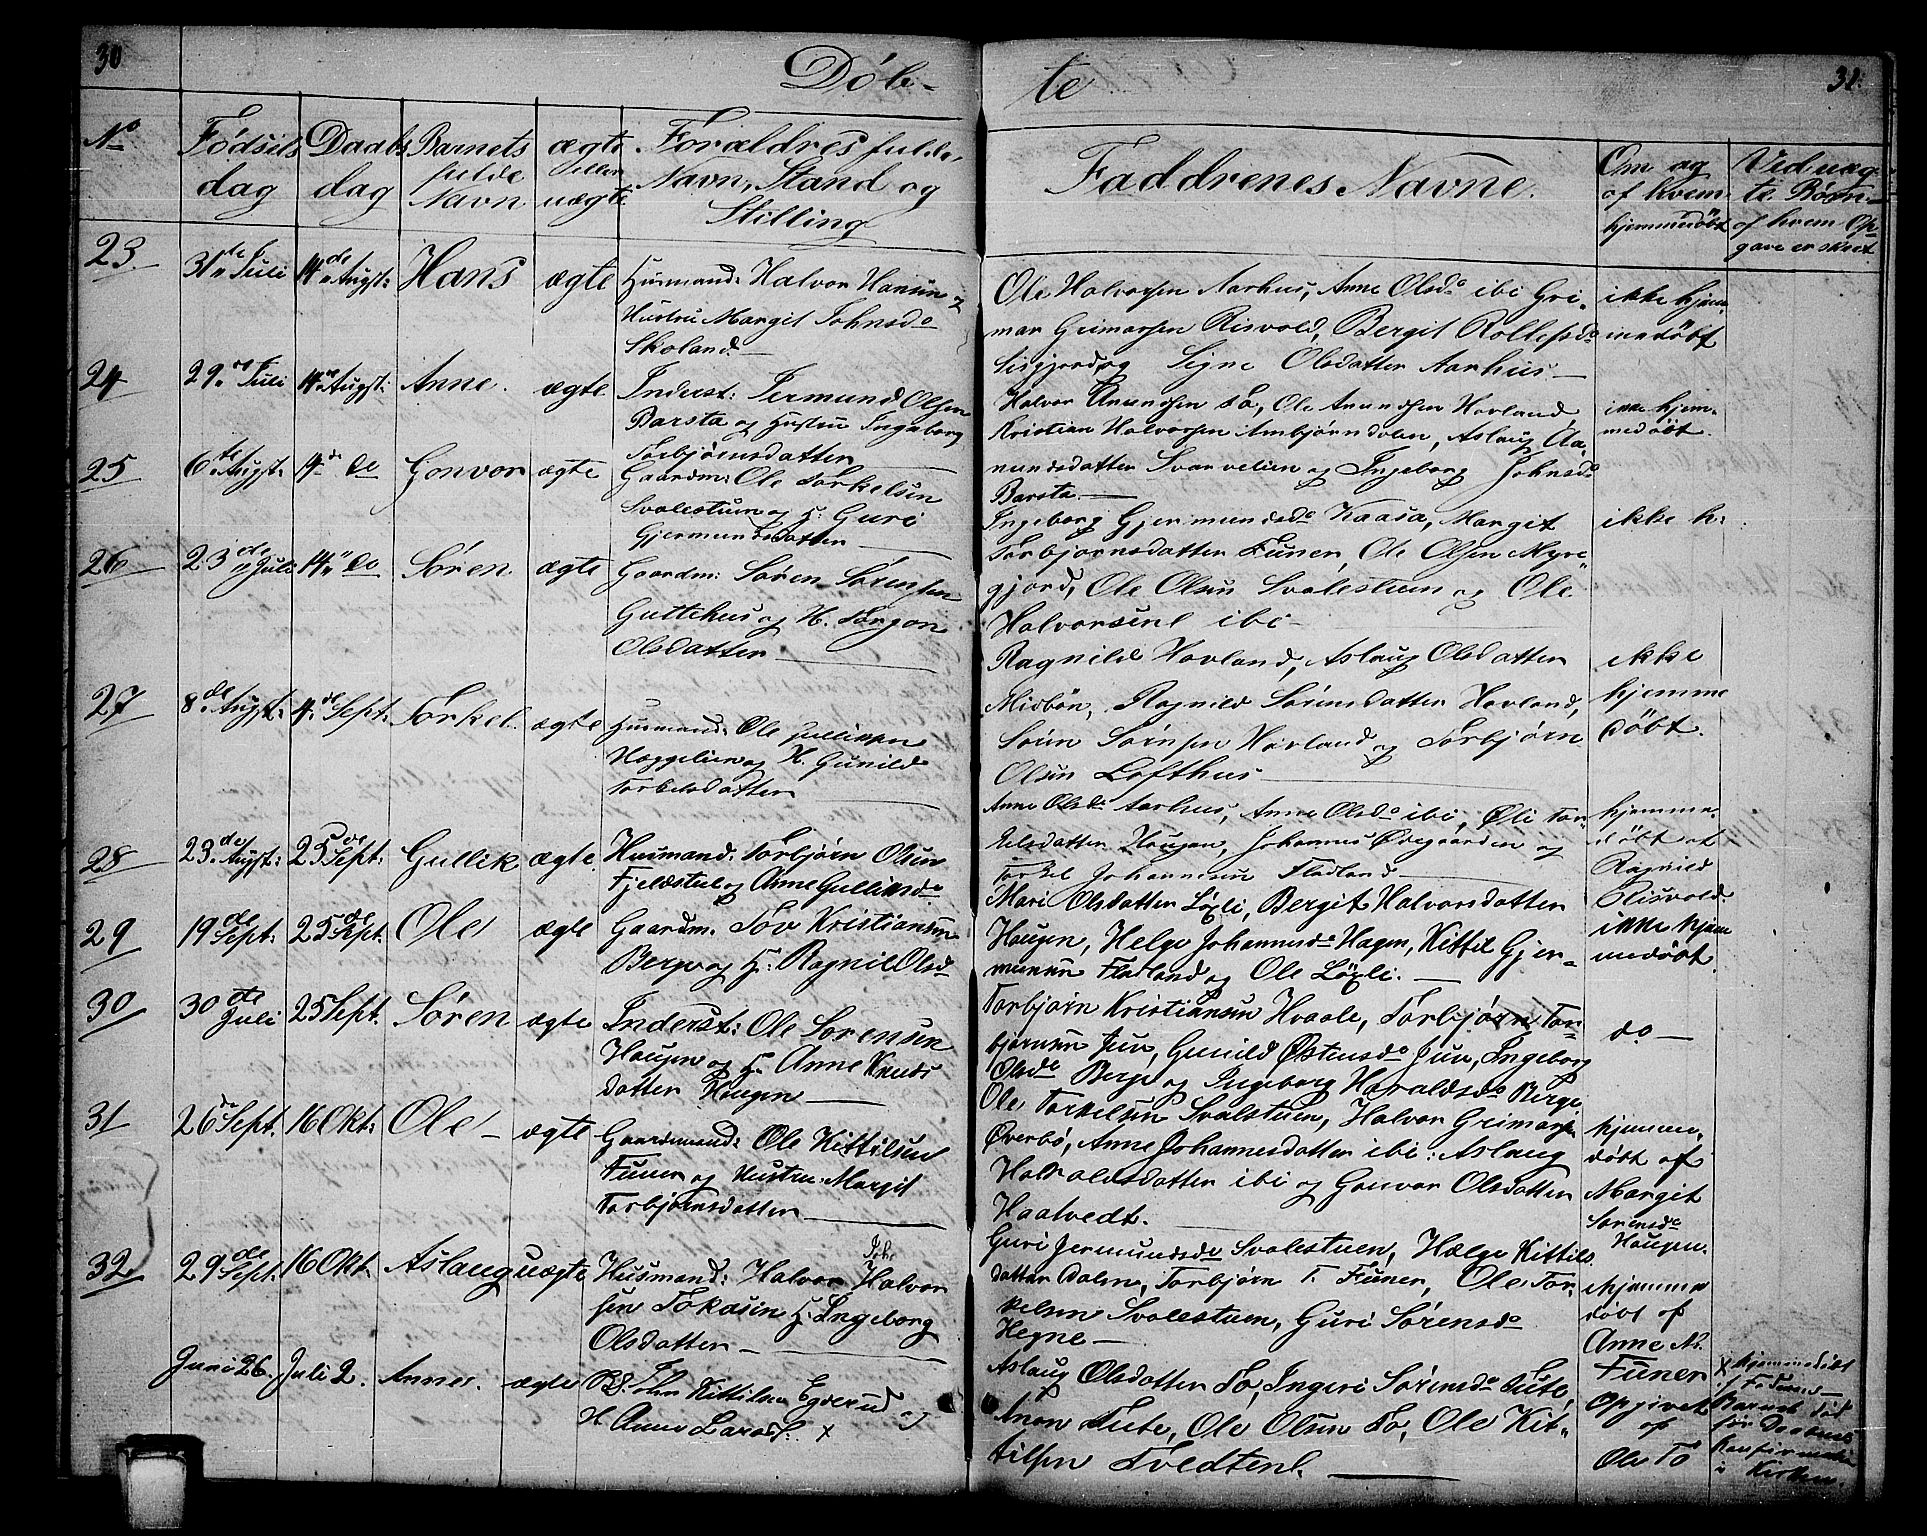 30
Döb-
te
31.
No
Fødsels
dag
Daabs
dag
Barnets
fulde
Navn
ægte
eller
uægte
Forældres fulde
Navn, Stand og
Stilling
Faddrenes Navne.
Om og
af hvem
hjemmedöbt
Vid uæg-
te Børn
af hvem Op-
gave er skeet
23
31te Juli
14de Augst:
Hans
ægte
Husmand: Halvor Hansen og
Hustru Margit Johnsdo
Skoland
Ole Halvorsen Aarhus, Anne Olsdo ibi Gri-
mar Grimarsen Risvold, Bergit Rollefsdo
Signe Olsdatter Aarhus
ikke hjem-
medöbt
24
29de Juli
14de Augst:
Anne.
ægte
Inderst: Jermund Olsen
Barsta og Hustru Ingeborg
Torbjörnsdatter
Halvor Amundsen Bö, Ole Amundsen Hovland
Kristian Halvorsen Ambjörndalen, Aslaug Aa-
mundsdatter Svarvelien og Ingeborg Johnsdo
Barsta
ikke hjem-
medöbt.
25
6te Augst:
14de do
Gonvor
ægte
Gaardm: Ole Torkelsen
Svalestuen og H: Guri
Gjermundsdatter
Ingeborg Gjermundsdo Kaasa, Margit
Torbjornsdatter Funer, Ole Olsen Myre-
gjord, Ole Olsen Svalestuen og Ole
Halvorsen ibi
ikke h:
26
23de Juli
14 do
Søren
ægte
Gaardm: Søren Sørensen
Guttehus og H.
Olsdatter
Ragnild Hovland, Aslaug Olsdatter
Midbön, Ragnild Sørensdatter Hovland,
Sørn Sørnsen Hovland og Torbjørn
Olsen Lofthus
ikke
hjemme
döbt.
27
8de Augst:
4de Sept:
Torkel
ægte
Husmand: Ole Gulliksen
Heggelien og H. Gunild
Torkelsdatter
Anne Olsdo Aarhus, Anne Olsdo ibi, Öli Tor-
kelsdatter Haugen, Johannes Övregaarden og
Torkel Johannesen Fladland
hjemme-
döbt af
Ragnild
Risvold
28
23de Augst:
25de Sept:
Gullik
ægte.
Husmand: Torbjörn Olsen
Fjeldstul og Anne Gulliksdo
Mari Olsdatter Lögli, Bergit Halvorsdatter
Haugen, Helge Johannesdo Hagen, Kittil Gjer-
munsen Fladland og Ole Lögli.
ikke hjem
medöbt.
29
19de Sept:
25de Sept.
Ole
ægte
Gaardm. Tov Kristiansen
Berge og H: Ragnild Olsdo
Torbjörn Kristiansen Hvaale, Torbjörn Tor-
björnsen Jun, Gunild Østensdo Jun, Ingeborg
Olsdo Berge og Ingeborg Haraldsdo Berge
do
30
30de Juli
25 Sept.
Søren
ægte
Inderst: Ole Sorensen
Haugen og H: Anne Knuds
datter Haugen
Ole Torkelsen Svalestuen, Halvor Grimarsen
Överbö, Anne Johannesdatter ibi: Aslaug
Haraldsdatter ibi og Gonvor Olsdatter
Haatvedt.
hjemme-
döbt af
Margit
Sorensdo
Haugen.
31
26de Sept.
16 Okt:
Ole
ægte
Gaardmand: Ole Kittilsen
Funer og Hustru: Margit
Torbjornsdatter
Guri Jermundsdo Svalestuen, Hælge Kittils
datter Dalen, Torbjørn T. Funer, Ole Tor-
kelsen Svalestuen, Guri Sørensdo
Hegne
hjemme
döbt af
Anne N.
Funer
32
29de Sept.
16 Okt.
Aslaug
uægte
Husmand: Halvor Halvor
sen Tokasen H: Ingeborg
Olsdatter
Aslaug Olsdatter Bö, Ingeri Sørensdo Tute,
Anon Tute, Ole Olsen Bö, Ole Kit-
tilsen Tvedten.
Opgivet
af
Ole Bö
Juni 26.
Juli 2.
Anne.
ægte
John Kittilsen Egderud og
H. Anne Larsd: x
x hjemmedöbt
af Faderen
Barnet död
för Daabens
Konfirmation
i Kirken.